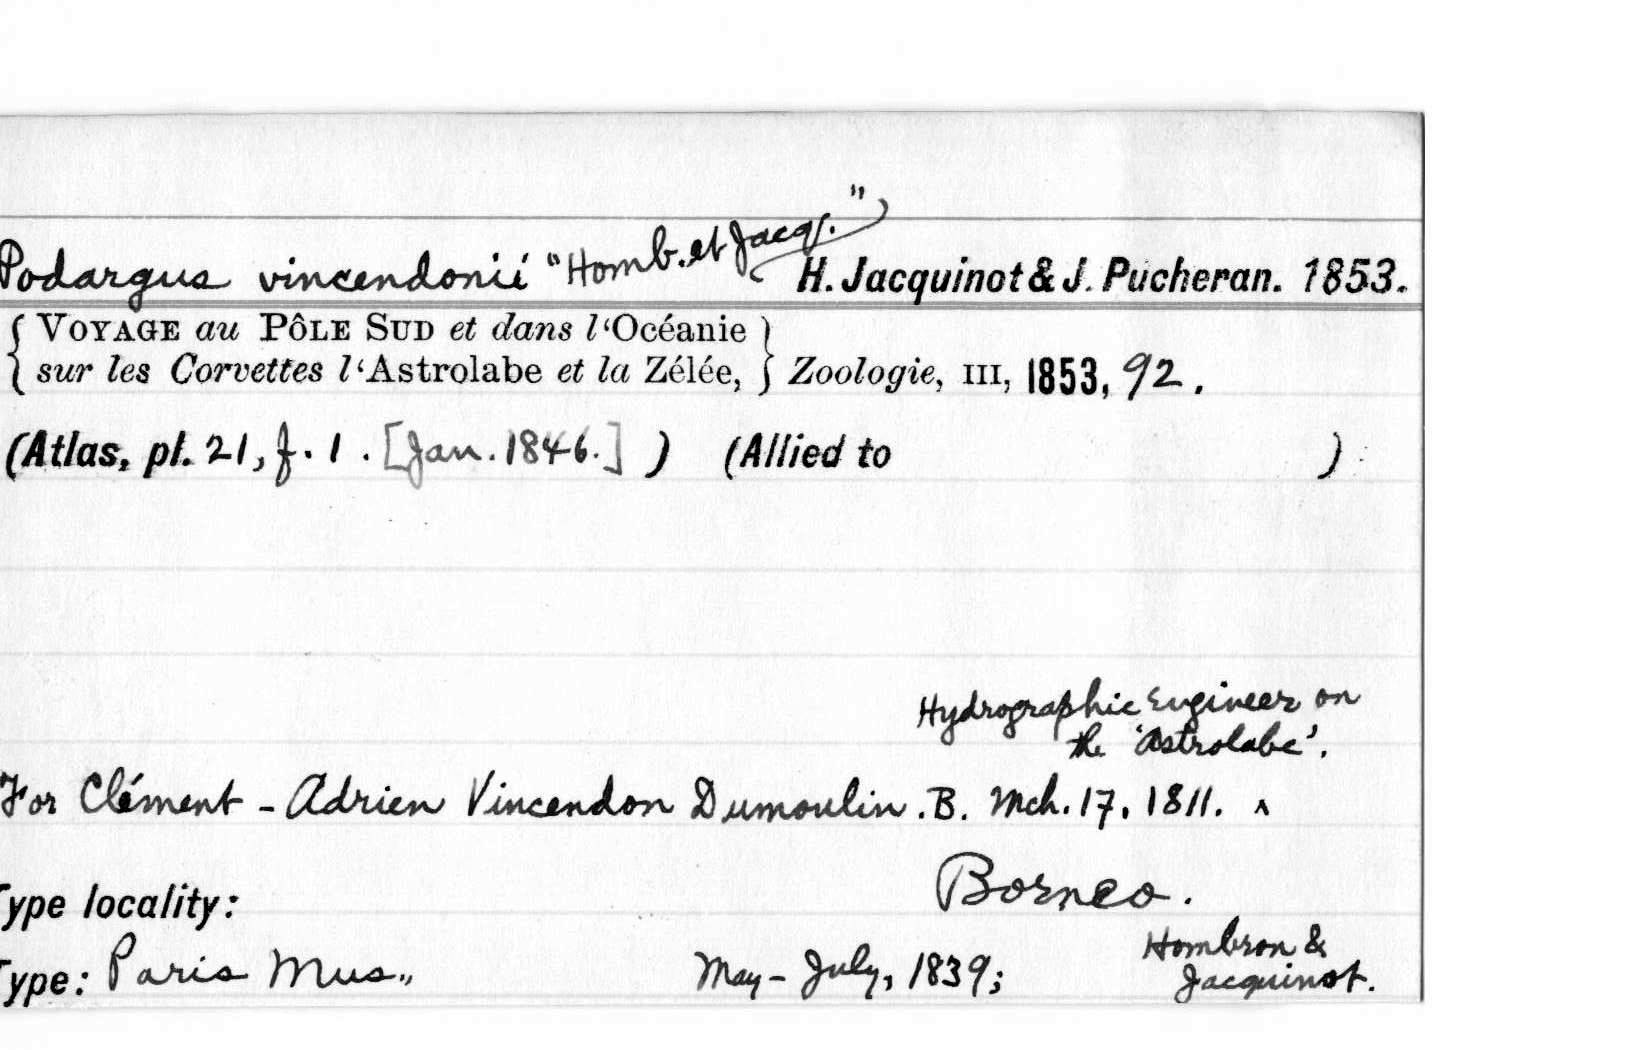 Podargus vincendonii "Homb. et Jacq." H. Jacquinot & J. Pucheran. 1853.
{ VOYAGE au PÔLE SUD et dans l‘Océanie }
{ sur les Corvettes l‘Astrolabe et la Zélée, } Zoologie, III, 1853, 92.
(Atlas, pl. 21, f. 1. [Jan. 1846.] ) (Allied to )
Hydrographic Engineer on
the 'Astrolabe'.
For Clément - Adrien Vincendon Dumoulin. B. Mch. 17, 1811. ^
Borneo.
Type locality:
Hombron &
Type: Paris Mus., May - July, 1839; Jacquinot.